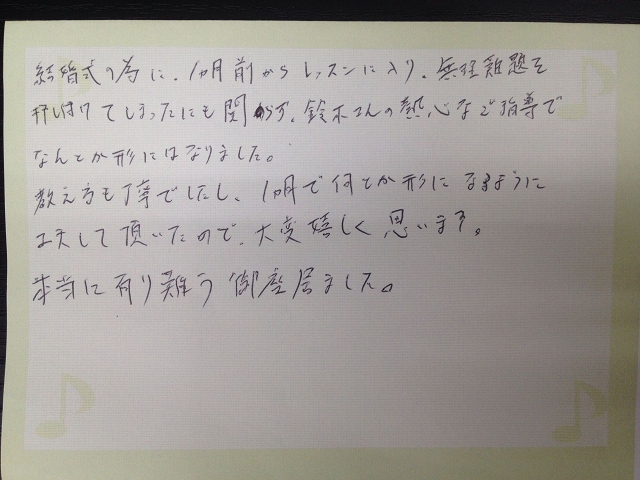 結婚式の為に、1ヵ月前からレッスンに入り、無理難題を
押し付けてしまったにも関わらず、鈴木さんの熱心なご指導で
なんとか形にはなりました。
教え方も丁寧でしたし、1ヵ月で何とか形になるように
工夫して頂いたので、大変嬉しく思います。
本当に有り難う御座居ました。